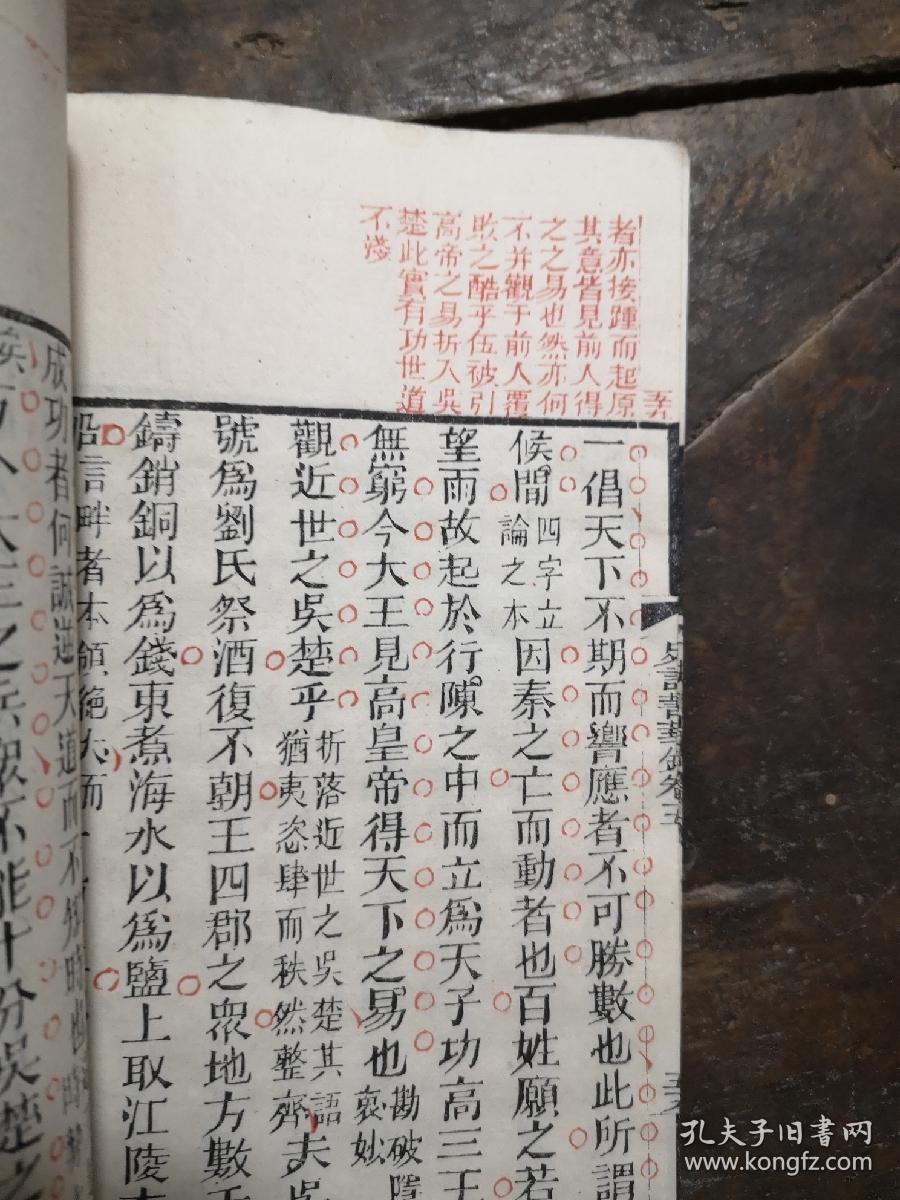 者亦接踵而起原
其意皆見前人得
之之易也然亦何
不并觀于前人覆
敗之酷乎伍破引
高帝之易折入吳
楚此實有功世道
不淺
一倡天下不期而響應者不可勝數也此所謂
候間四字立論之本因秦之亡而動者也百姓願之若
望雨故起於行陳之中而立爲天子功高三王
無窮今大王見高皇帝得天下之易也勘破隱衷妙
觀近世之吳楚乎折落近世之吳楚其語猶夷恣肆而秩然整齊夫吳
號爲劉氏祭酒復不朝王四郡之衆地方數千
鑄銷銅以爲錢東煮海水以爲鹽上取江陵
言畔者本領絶大而
成功者何誠逆天道而不知時也
大王之兵衆不能十分吳楚之
孔夫子旧书网
www.kongfz.com